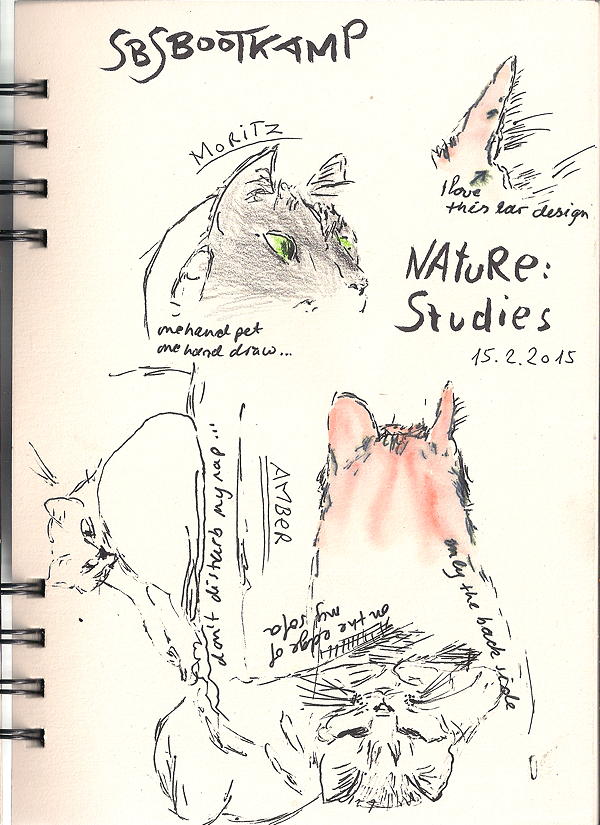 SBSBOOTKAMP
MORITZ
I love
this ear design
NAtuRe:
Studies
15.2.2015
one hand pet
one hand draw...
don't disturb my nap...
AMBER
only the back side
on the edge of
my sofa